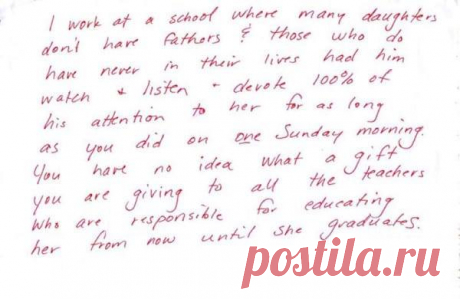 I work at a school where many daughters
don't have fathers & those who do
have never in their lives had him
watch & listen & devote 100% of
his attention to her for as long
as you did on one Sunday morning.
You have no idea what a gift
you are giving to all the teachers
who are responsible for educating
her from now until she graduates.
postila.ru